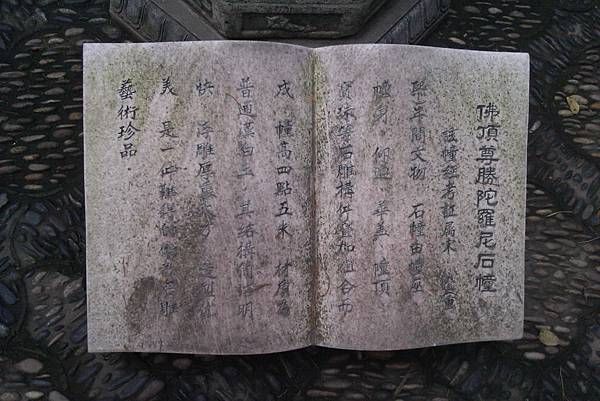 佛頂尊勝陀羅尼石幢
該幢經考證属木
聡年間文物 石幢由幢座
幢身 仰蓮 華蓋 幢頂
寶珠等石雕構件叠加組合而
成 幢高四點五米 材質為
普通漢白玉 其結構簡明
快 浮雕厚
美 是一件難得的 石雕
藝術珍品.